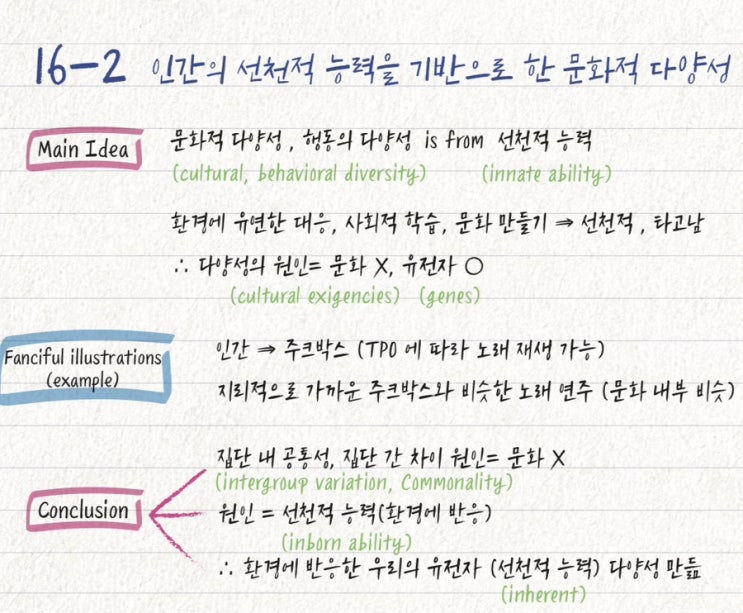 16-2 인간의 선천적 능력을 기반으로 한 문화적 다양성
Main Idea
문화적 다양성, 행동의 다양성 is from 선천적 능력
(cultural, behavioral diversity) (innate ability)
환경에 유연한 대응, 사회적 학습, 문화 만들기 ⇒ 선천적, 타고남
∴ 다양성의 원인= 문화 X, 유전자 O
(cultural exigencies) (genes)
Fanciful illustrations
(example)
인간 ⇒ 주크박스 (TPO 에 따라 노래 재생 가능)
지리적으로 가까운 주크박스와 비슷한 노래 연주 (문화 내부 비슷)
Conclusion
집단 내 공통성, 집단 간 차이 원인= 문화 X
(intergroup variation, Commonality)
원인 = 선천적 능력(환경에 반응)
(inborn ability)
∴ 환경에 반응한 우리의 유전자 (선천적 능력) 다양성 만듦
(inherent)